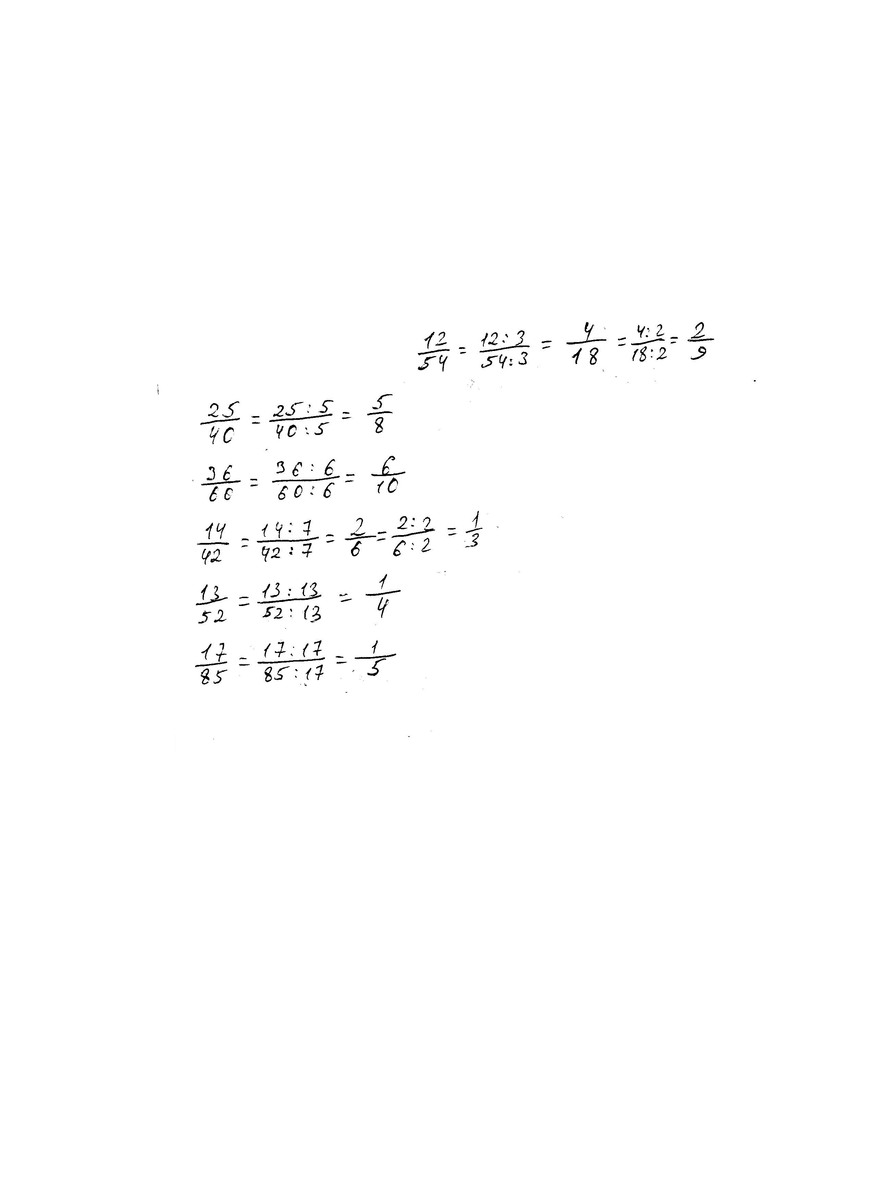 12/54 = 12:3/54:3 = 4/18 = 4:2/18:2 = 2/9
25/40 = 25:5/40:5 = 5/8
36/60 = 36:6/60:6 = 6/10
14/42 = 14:7/42:7 = 2/6 = 2:2/6:2 = 1/3
13/52 = 13:13/52:13 = 1/4
17/85 = 17:17/85:17 = 1/5